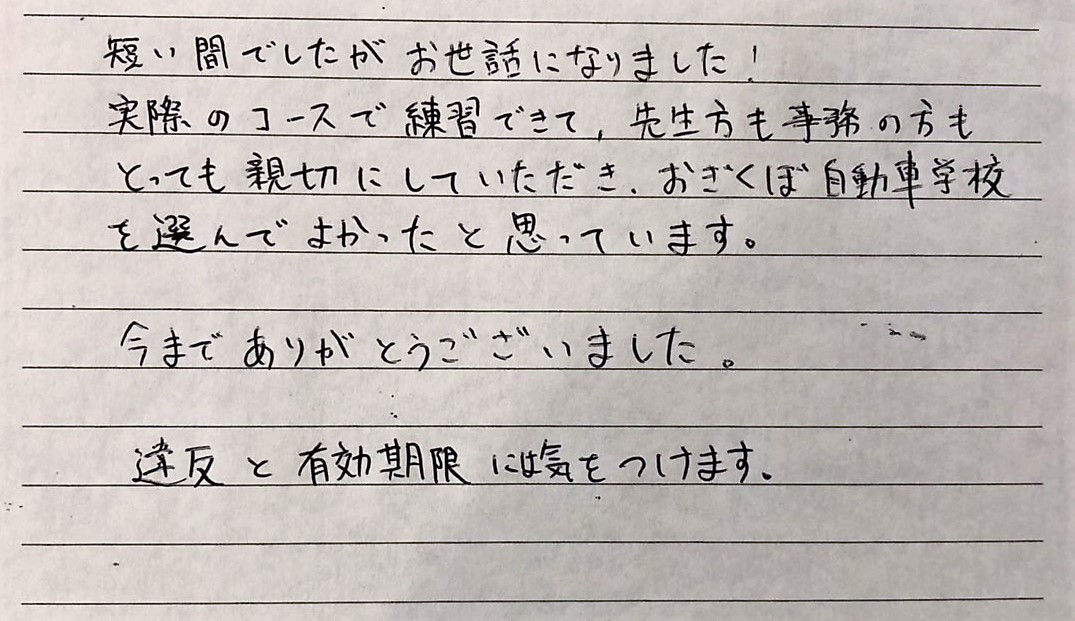 短い間でしたがお世話になりました!
実際のコースで練習できて、先生方も事務の方も
とっても親切にしていただき、おぎくぼ自動車学校
を選んでよかったと思っています。
今までありがとうございました。
違反と有効期限には気をつけます。